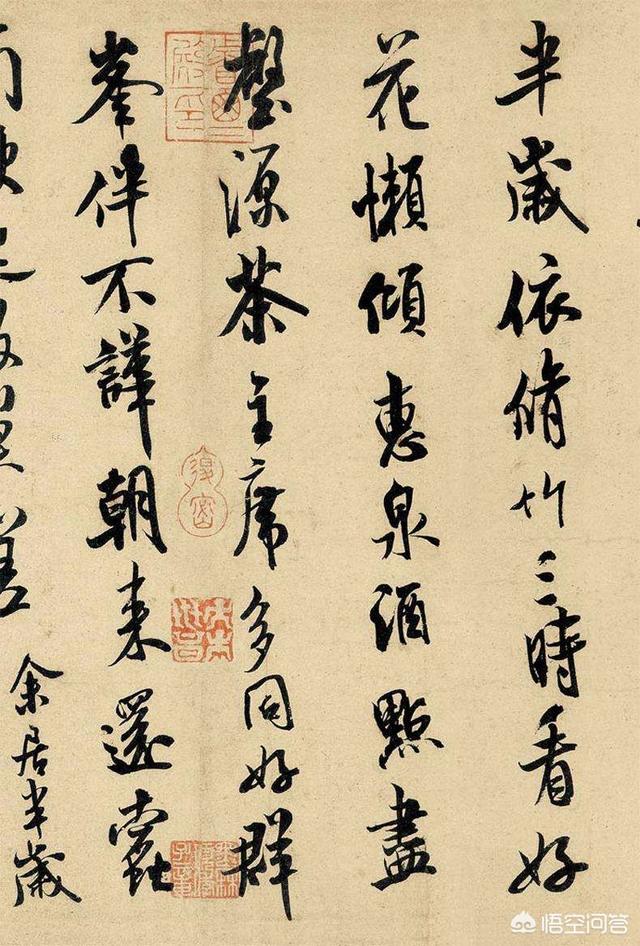 半歲依脩竹三時看好
花懶傾惠泉酒點盡
壑源茶主席多同好群
峯伴不譁朝来還蠹
余居半歲
悟空问答